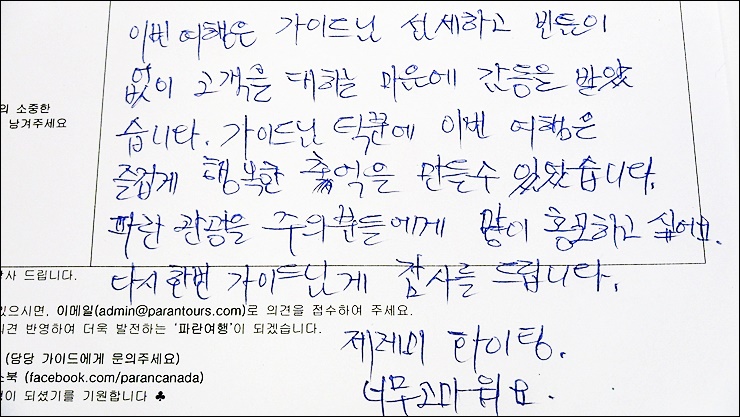 이번 여행은 가이드님 섬세하고 빈틈이
없이 고객을 대하는 마음에 감동을 받았
의 소중한
남겨주세요
습니다. 가이드님 덕분에 이번 여행은
즐겁게 행복한 추억을 만들수 있었습니다.
파란 관광을 주의분들에게 많이 홍보하고 싶어요.
사 드립니다.
다시한번 가이드님게 감사를 드립니다.
있으시면, 이메일(admin@parantours.com)로 의견을 접수하여 주세요.
견 반영하여 더욱 발전하는 '파란여행'이 되겠습니다.
(담당 가이드에게 문의주세요)
스북 (facebook.com/parancanada)
이 되셨기를 기원합니다 ♣
제레미 화이팅.
너무고마워요.